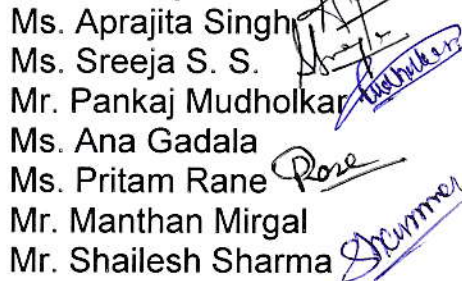 Ms. Aprajita Singh
Ms. Sreeja S. S.
Mr. Pankaj Mudholkar
Ms. Ana Gadala
Ms. Pritam Rane
Mr. Manthan Mirgal
Mr. Shailesh Sharma